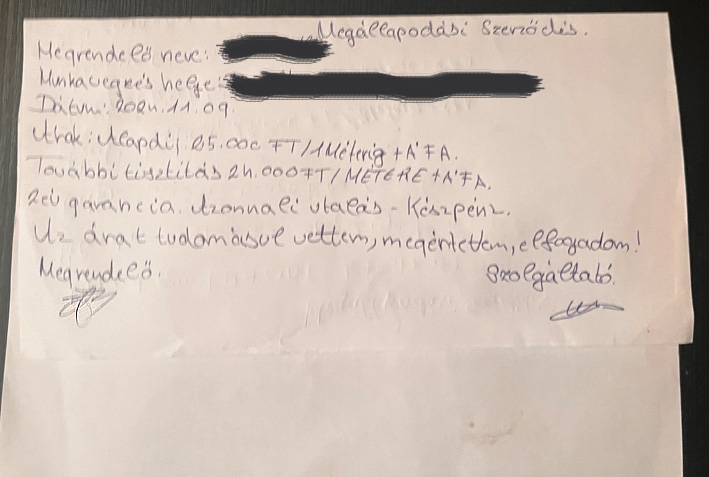 Megállapodási Szerződés.
Megrendelő neve:
Munkavegzés helye:
Dátum: 2024.11.09.
Árak: Alapdíj 25.000 FT/1Méterig + ÁFA.
További tisztítás 24.000 FT/MÉTERE + ÁFA.
2év garancia. Azonnali utalás - Készpénz.
Az árat tudomásul vettem, megértettem, elfogadom!
Megrendelő.
Szolgáltató.